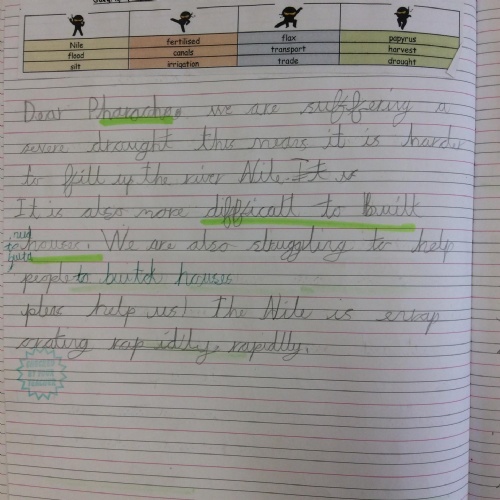 Nile fertilised flax papyrus
flood canals transport harvest
silt irrigation trade drought
Dear Pharaohe we are suffering a
severe drought this means it is harder
to fill up the river Nile. It is
It is also more difficalt to built
houses. We are also struggling to help
people to build houses
pleas help us! The Nile is envap
orating rap idlly, rapidlly.